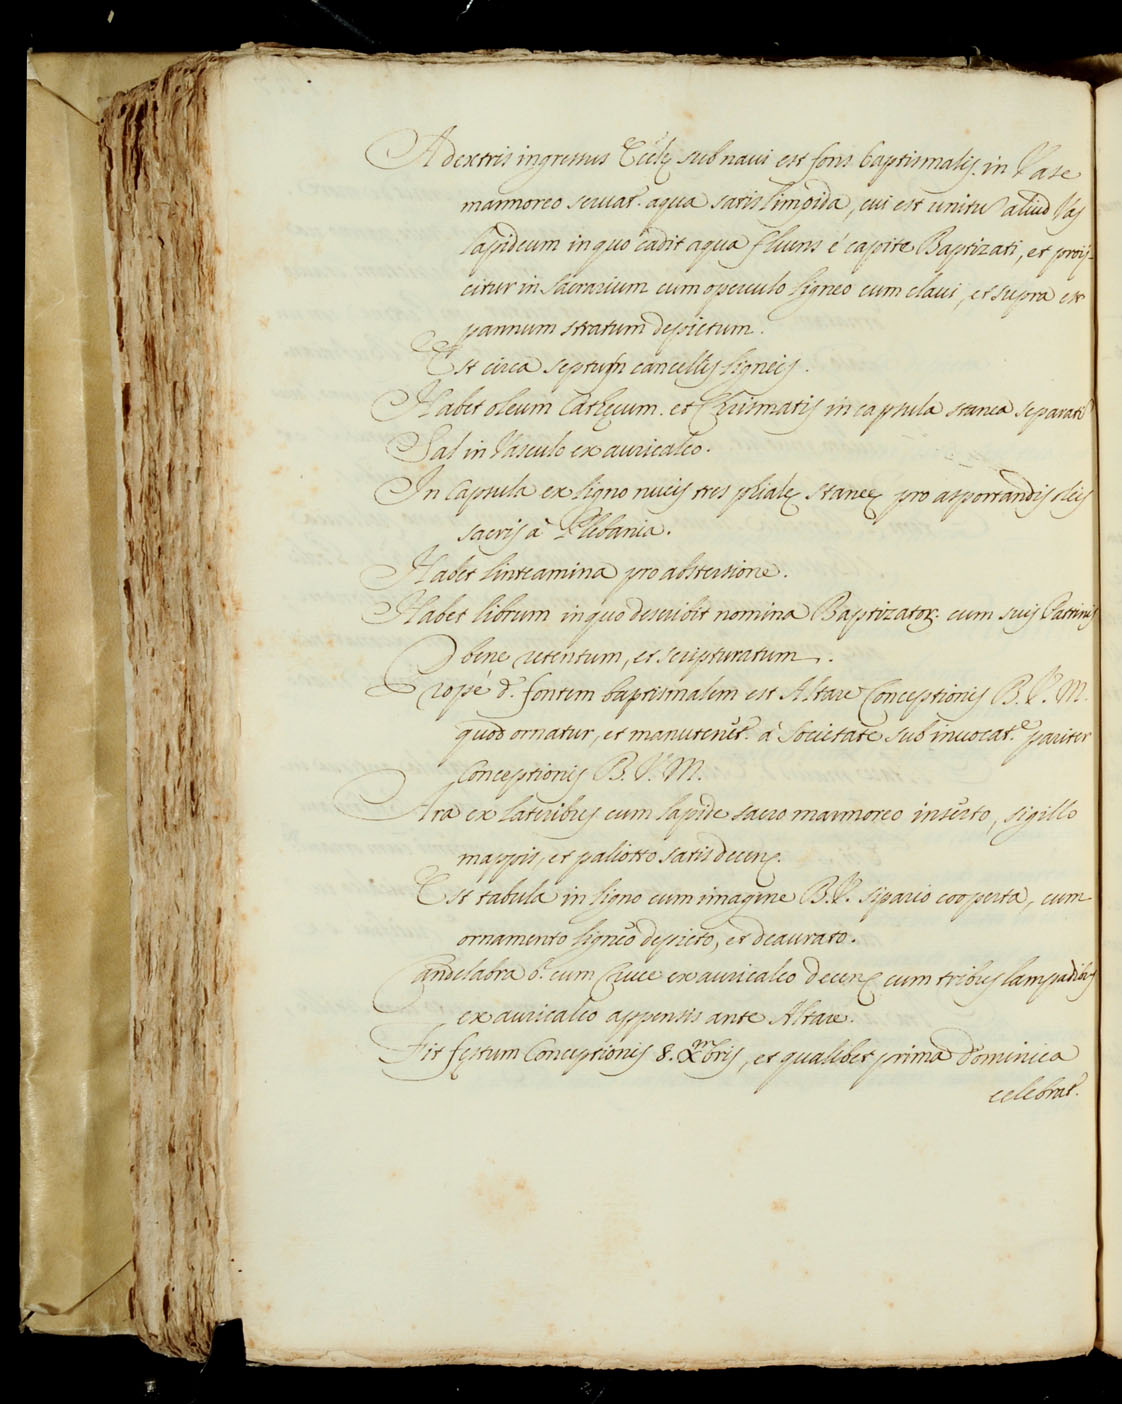 A dextris ingressus Eccle subnaui est fons baptismalis in Vase
marmoreo seruat. aqua satis limpida, cui est unitu aliud Vas
lapideum in quo cadit aqua fluens é capite Baptizati, et proij-
citur in Sacrarium cum operculo ligneo cum claui, et supra est
pannum stratum depictum.
Est circa septum cancellis ligneis.
Habet oleum Cathecum. et Chrismatis in capsula stanea separati
Sal in Vasculo ex auricalco.
In Capsula ex ligno nucis tres phiale stanee pro asportandis oleis
sacris à Plebania.
Habet linteamina pro abstersione.
Habet librum in quo describit nomina Baptizator. cum suis Patrinis
bene retentum, et scripturatum.
Propé d. fontem baptismalem est Altare Conceptionis B. V. M.
quod ornatur, et manutenet. à Societate sub inuocat.e pariter
Conceptionis B. V. M.
Ara ex lateribus cum lapide sacro marmoreo inserto, sigillo
mappis, et paliotto satis decens.
Est tabula in ligno cum imagine B. V. sipario cooperta, cum
ornamento ligneo depicto, et deaurato.
Candelabra o. cum Cruce ex auricalco decens cum tribus lampadibus
ex auricalco appensis ante Altare.
Fit festum Conceptionis 8. Xmbris, et qualibet prima Dominica
celebrat.